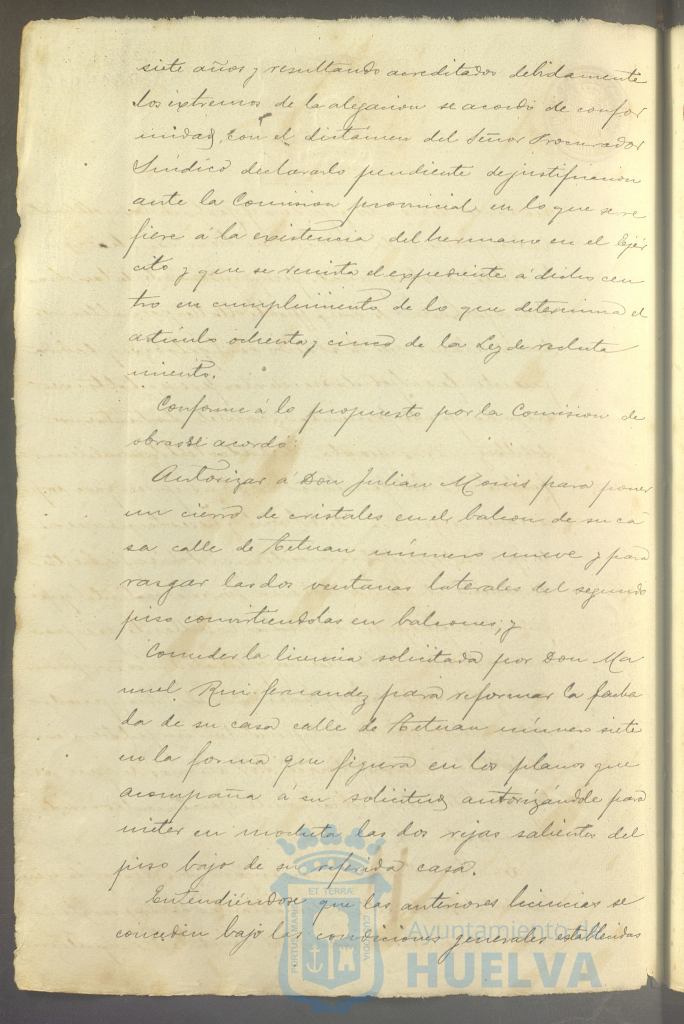 siete años y resultando acreditados debidamente
los extremos de la alegacion se acordó de confor
midad, con el dictámen del Señor Procurador
Síndico declararlo pendiente de justificacion
ante la Comision provincial en lo que se re
fiere á la existencia del hermano en el Ejér
cito y que se remita el expediente á dicho cen
tro en cumplimiento de lo que determina el
artículo ochenta y cinco de la Ley de recluta
miento.
Conforme á lo propuesto por la Comision de
obras se acordó:
Autorizar á Don Julian Monis para poner
un cierro de cristales en el balcon de su ca
sa calle de Tetuan número nueve y para
rasgar las dos ventanas laterales del segundo
piso convirtiendolas en balcones; y
Conceder la licencia solicitada por Don Ma
nuel Rui Fernandez para reformar la facha
da de su casa calle de Tetuan número siete
en la forma que figura en los planos que
acompaña á su solicitud autorizándole para
meter en mocheta las dos rejas salientes del
piso bajo de su referida casa.
Entendiéndose que las anteriores licencias se
conceden bajo las condiciones generales establecidas
ET TERRÆ
PORTUS MARIS
CUSTODIA
Ayuntamiento de
HUELVA